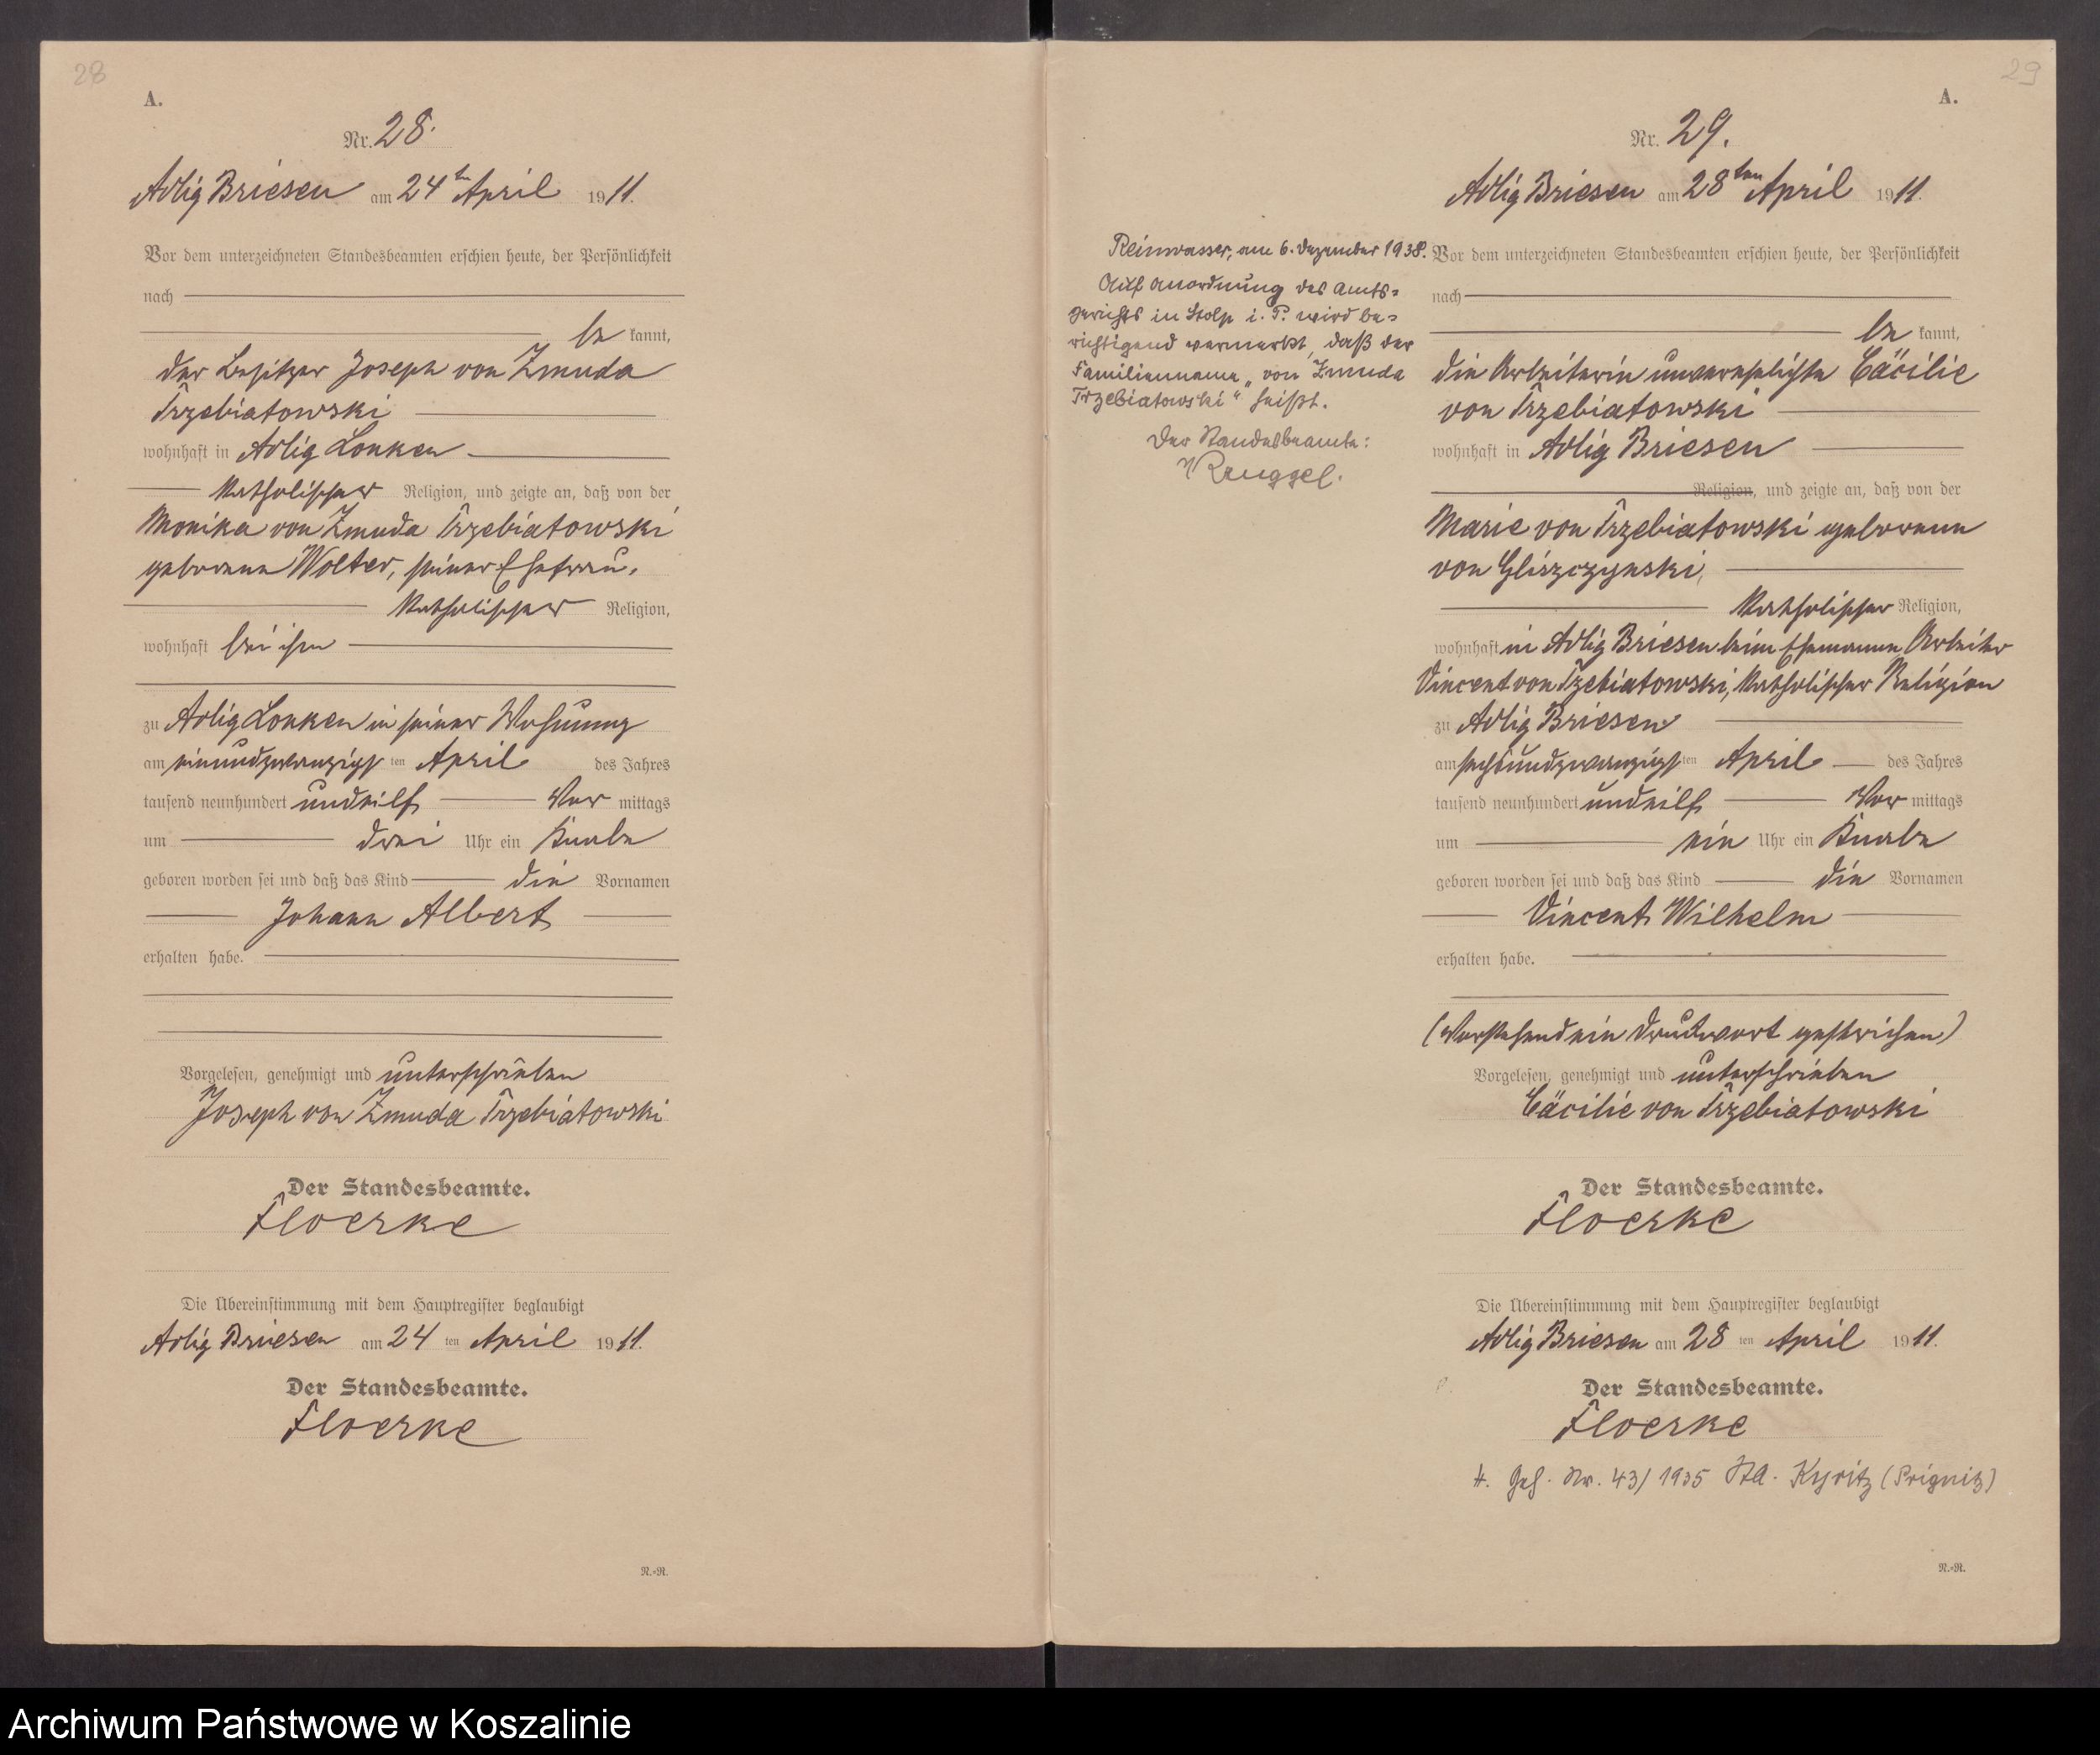 28
A.
Nr. 28.
Adlig Briesen am 24ten April 1911.
Vor dem unterzeichneten Standesbeamten erschien heute, der Persönlichkeit
nach
be kannt,
der Besitzer Joseph von Zmuda
Trzebiatowski
wohnhaft in Adlig Lonken
katholischer Religion, und zeigte an, daß von der
Monika von Zmuda Trzebiatowski
geborene Wolter, seiner Ehefrau,
katholischer Religion,
wohnhaft bei ihm
zu Adlig Lonken in seiner Wohnung
am einundzwanzigsten April des Jahres
tausend neunhundert undeilf Vor mittags
um drei Uhr ein Knabe
geboren worden sei und daß das Kind die Vornamen
Johann Albert
erhalten habe.
Vorgelesen, genehmigt und unterschrieben
Joseph von Zmuda Trzebiatowski
Der Standesbeamte.
Floerke
Die Übereinstimmung mit dem Hauptregister beglaubigt
Adlig Briesen am 24 ten April 1911.
Der Standesbeamte.
Floerke
R.-R.
29
A.
Nr. 29.
Adlig Briesen am 28ten April 1911.
Reinwasser, am 6. Dezember 1938.
Auf Anordnung des Amts-
gerichts in Stolp i. P. wird be-
richtigend vermerkt, daß der
Familienname „von Zmuda
Trzebiatowski“ heißt.
Der Standesbeamte:
Vor dem unterzeichneten Standesbeamten erschien heute, der Persönlichkeit
nach
be kannt,
die Arbeiterin unverehelichte Cäcilie
von Trzebiatowski
wohnhaft in Adlig Briesen
Religion, und zeigte an, daß von der
Marie von Trzebiatowski geborene
von Gliszczynski,
katholischer Religion,
wohnhaft in Adlig Briesen beim Ehemanne Arbeiter
Vincent von Tzebiatowski, katholischer Religion
zu Adlig Briesen
am sechsundzwanzigsten April des Jahres
tausend neunhundert undeilf Vor mittags
um ein Uhr ein Knabe
geboren worden sei und daß das Kind die Vornamen
Vincent Wilhelm
erhalten habe.
(Vorstehend ein Druckwort gestrichen)
Vorgelesen, genehmigt und unterschrieben
Cäcilie von Trzebiatowski
Der Standesbeamte.
Floerke
Die Übereinstimmung mit dem Hauptregister beglaubigt
Adlig Briesen am 28 ten April 1911.
Der Standesbeamte.
Floerke
Nr. 43/1935 StA. Kyritz (Prignitz)
R.-R.
Archiwum Państwowe w Koszalinie